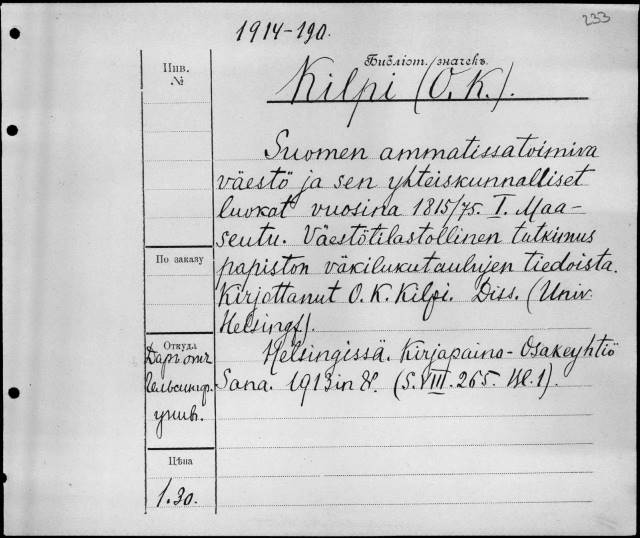 233
1914-190.
Библіот. значекъ.
Инв.
№
Kilpi (O. K.).
Suomen ammatissatoimiva
väestö ja sen yhteiskunnalliset
luokat vuosina 1815/75. I. Maa-
seutu. Väestötilastollinen tutkimus
papiston väkilukutaulujen tiedoista.
Kirjottanut O. K. Kilpi. Diss. (Univ.
Helsingf.).
Helsingissä. Kirjapaino-Osakeyhtiö
Sana. 1913 in 8. (S. VIII. 265. Bl. 1).
По заказу
Откуда
Дар отъ
Гельсингф.
унив.
Цѣна
1.30.